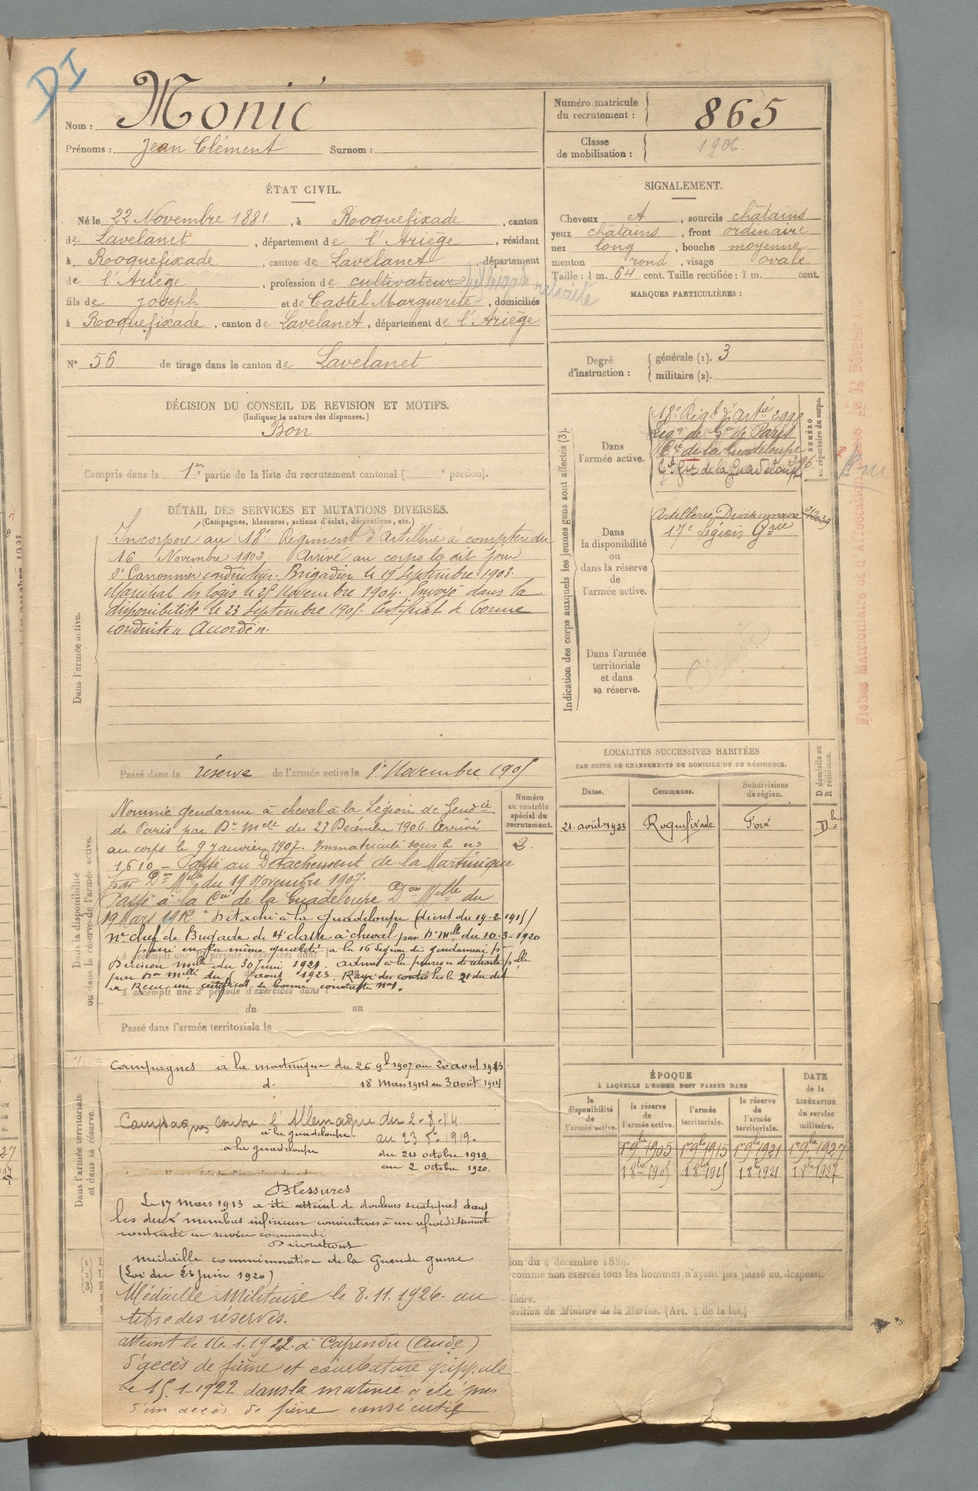 DI
Nom : Monié
Prénoms : Jean Clément Surnom :
Numéro matricule du recrutement : 865
Classe de mobilisation : 1906
ÉTAT CIVIL.
Né le 22 Novembre 1881, à Roquefixade, canton
de Lavelanet, département de l'Ariège, résidant
à Roquefixade, canton de Lavelanet, département
de l'Ariège, profession de cultivateur
fils de Joseph et de Castel Marguerite, domiciliés
à Roquefixade, canton de Lavelanet, département de l'Ariège
N° 56 de tirage dans le canton de Lavelanet
SIGNALEMENT.
Cheveux et, sourcils châtains
yeux châtains, front ordinaire
nez long, bouche moyenne
menton rond, visage ovale
Taille : 1 m. 64 cent. Taille rectifiée : 1 m. cent.
MARQUES PARTICULIÈRES :
Degré d'instruction : générale (1). 3
militaire (2).
DÉCISION DU CONSEIL DE REVISION ET MOTIFS.
(Indiquer la nature des dispenses.)
Bon
Compris dans la 1re partie de la liste du recrutement cantonal ( portion).
DÉTAIL DES SERVICES ET MUTATIONS DIVERSES.
(Campagnes, blessures, actions d'éclat, décorations, etc.)
Dans l'armée active.
Incorporé au 18e Régiment d'Artillerie à compter du
16 Novembre 1902 Arrivé au corps le dit jour
2e Canonnier conducteur. Brigadier le 19 Septembre 1903.
Maréchal des logis le 25 Novembre 1904. Envoyé dans la
disponibilité le 23 Septembre 1905. Certificat de bonne
conduite « Accordé ».
Passé dans la réserve de l'armée active le 1er Novembre 1905
Indication des corps auxquels les jeunes gens sont affectés (3).
Dans l'armée active.
18e Régt d'Artie
Légon de Gie de Paris
Cie de la Guadeloupe
de la Guadeloupe
NUMÉRO au répertoire du corps.
Dans la disponibilité ou dans la réserve de l'armée active.
Artillerie Divisionnaire
17e Légion Gie
Dans l'armée territoriale et dans sa réserve.
LOCALITÉS SUCCESSIVES HABITÉES
PAR SUITE DE CHANGEMENTS DE DOMICILE OU DE RÉSIDENCE.
Dates. Communes. Subdivisions de région. D domicile ou R résidence.
21 août 1923 Roquefixade Foix D
Dans la disponibilité ou dans la réserve de l'armée active.
Numéro au contrôle spécial du recrutement.
2
Nommé gendarme à cheval à la Légion de Gendie
de Paris par Don Melle du 27 Décembre 1906. Arrivé
au corps le 9 Janvier 1907. Immatriculé sous le no
1610 - Passé au Détachement de la Martinique
par Don Melle du 19 Novembre 1907.
Passé à la Cie de la Guadeloupe Don Melle du
19 Mars 1912. Détaché à la Guadeloupe (décret du
Né chef de Brigade de 4e classe à cheval par Don Melle du 10-3-1920
Passé en la même qualité à la 16 Légion de gendarmerie
Décision Melle du 30 Juin 1921. Admis à la pension de retraite
par Don Melle du août 1923. Rayé des contrôles le 21 du dit
a Reçu un certificat de bonne conduite no 1.
a accompli une 2e période d'exercices dans l
du au
Passé dans l'armée territoriale le
Dans l'armée territoriale et dans sa réserve.
Campagnes à la Martinique du 26 9bre 1907 au 20 août 1913
d° 18 Mars 1914 au 3 août 1914
Campagnes contre l'Allemagne du 2-8-14
à la guadeloupe au 23 1919.
à la guadeloupe du 24 octobre 1919
au 2 octobre 1920.
Blessures
Le 17 mars 1913 a été atteint de douleurs sciatiques dans
les deux membres inférieurs consécutives à un refroidissement
contracté en service commandé
Décorations
Médaille commémorative de la Grande guerre
(Loi du 23 juin 1920)
Médaille Militaire le 8.11.1926 au
titre des réserves.
atteint le 16.1.1922 à Capendu (Aude)
d'accès de fièvre et courbature grippale
Le 15.1.1922 dans la matinée a été pris
d'un accès de fièvre consécutif
ÉPOQUE
À LAQUELLE L'HOMME DOIT PASSER DANS
DATE de la LIBÉRATION du service militaire.
la disponibilité de l'armée active. la réserve de l'armée active. l'armée territoriale. la réserve de l'armée territoriale.
1er 9bre 1905 1er 9bre 1915 1er 9bre 1921 1er 9bre 1927
ion du 4 décembre 1889.
comme non exercés tous les hommes n'ayant pas passé au drapeau.
osition du Ministre de la Marine. (Art. 4 de la loi.)